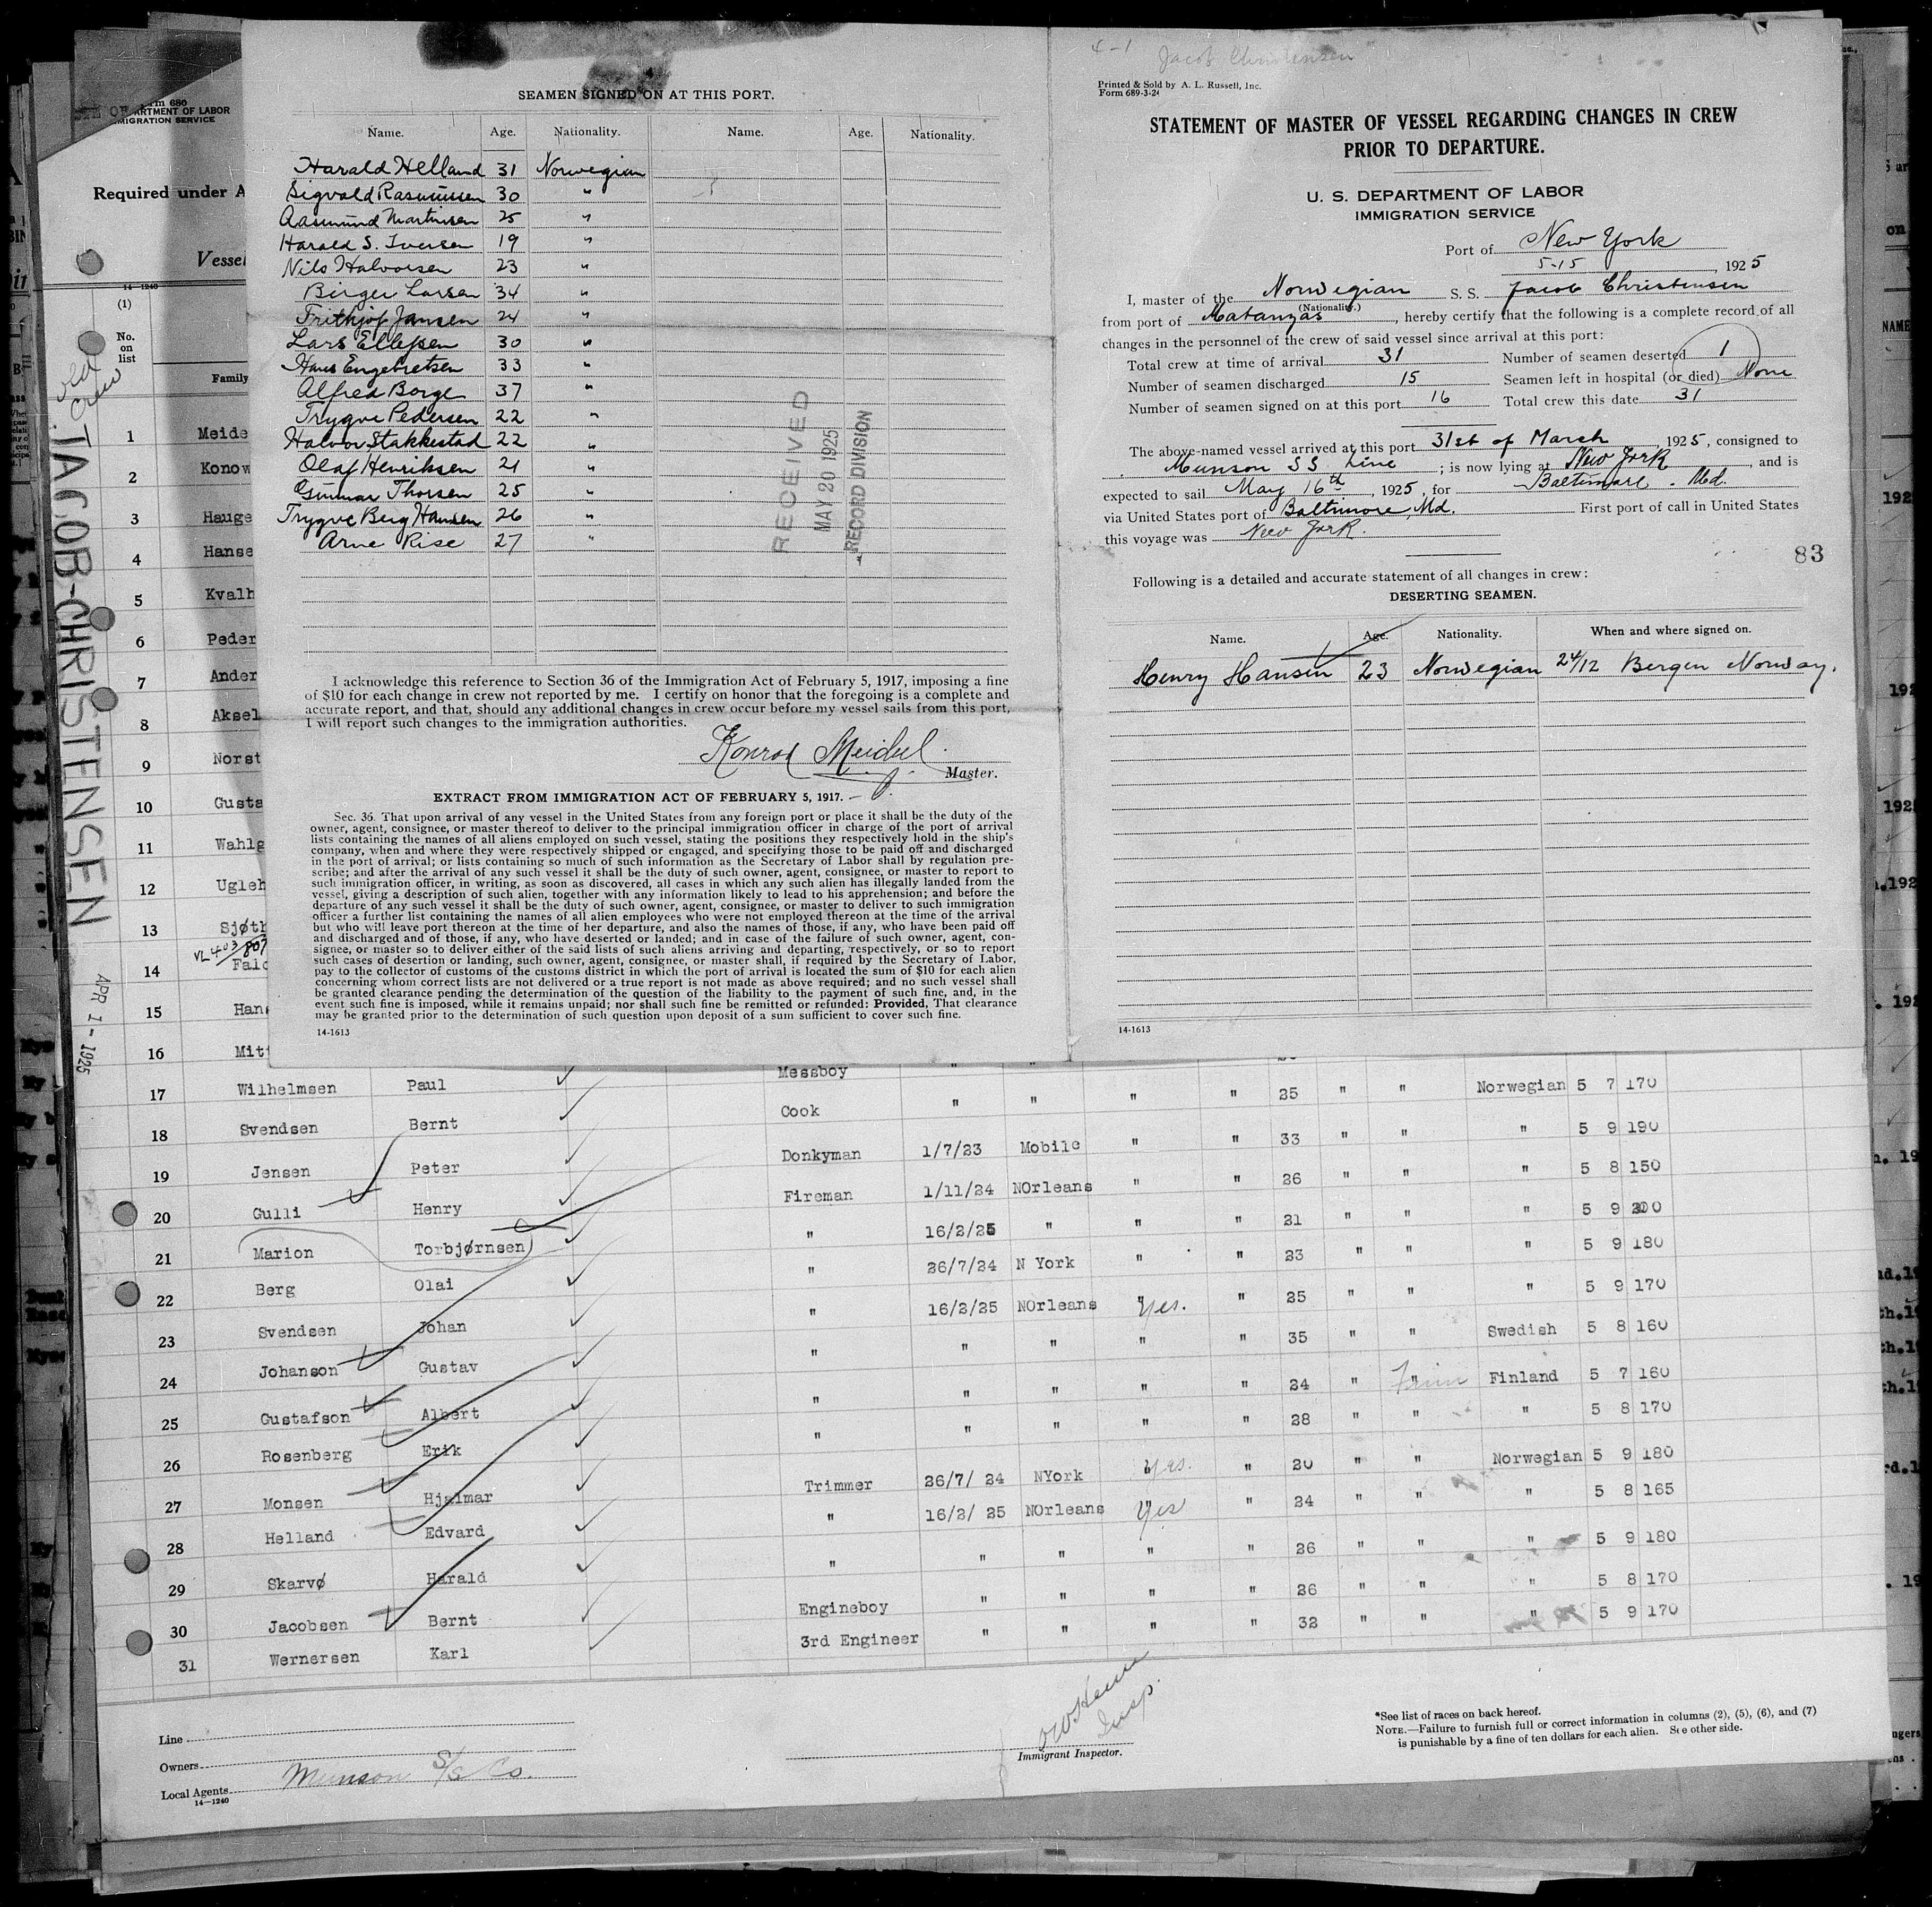 SEAMEN SIGNED ON AT THIS PORT.
Name. Age. Nationality. Name. Age. Nationality.
Harald Helland 31 Norwegian
Sigvald Rasmussen 30 "
Aasmund Martinsen 25 "
Harald S. Iversen 19 "
Nils Halvorsen 23 "
Birger Larsen 34 "
Frithjof Jansen 24 "
Lars Ellefsen 30 "
Hans Engebretsen 33 "
Alfred Borge 37 "
Trygve Pedersen 22 "
Halvor Stakkestad 22 "
Olaf Henriksen 21 "
Gunnar Thorsen 25 "
Trygve Berg Hansen 26 "
Arne Rise 27 "
RECEIVED
MAY 20 1925
RECORD DIVISION
I acknowledge this reference to Section 36 of the Immigration Act of February 5, 1917, imposing a fine
of $10 for each change in crew not reported by me. I certify on honor that the foregoing is a complete and
accurate report, and that, should any additional changes in crew occur before my vessel sails from this port,
I will report such changes to the immigration authorities.
Konrad Meidell
Master.
EXTRACT FROM IMMIGRATION ACT OF FEBRUARY 5, 1917.
Sec. 36. That upon arrival of any vessel in the United States from any foreign port or place it shall be the duty of the
owner, agent, consignee, or master thereof to deliver to the principal immigration officer in charge of the port of arrival
lists containing the names of all aliens employed on such vessel, stating the positions they respectively hold in the ship's
company, when and where they were respectively shipped or engaged, and specifying those to be paid off and discharged
in the port of arrival; or lists containing so much of such information as the Secretary of Labor shall by regulation pre-
scribe; and after the arrival of any such vessel it shall be the duty of such owner, agent, consignee, or master to report to
such immigration officer, in writing, as soon as discovered, all cases in which any such alien has illegally landed from the
vessel, giving a description of such alien, together with any information likely to lead to his apprehension; and before the
departure of any such vessel it shall be the duty of such owner, agent, consignee, or master to deliver to such immigration
officer a further list containing the names of all alien employees who were not employed thereon at the time of the arrival
but who will leave port thereon at the time of her departure, and also the names of those, if any, who have been paid off
and discharged and of those, if any, who have deserted or landed; and in case of the failure of such owner, agent, con-
signee, or master so to deliver either of the said lists of such aliens arriving and departing, respectively, or so to report
such cases of desertion or landing, such owner, agent, consignee, or master shall, if required by the Secretary of Labor,
pay to the collector of customs of the customs district in which the port of arrival is located the sum of $10 for each alien
concerning whom correct lists are not delivered or a true report is not made as above required; and no such vessel shall
be granted clearance pending the determination of the question of the liability to the payment of such fine, and, in the
event such fine is imposed, while it remains unpaid; nor shall such fine be remitted or refunded: Provided, That clearance
may be granted prior to the determination of such question upon deposit of a sum sufficient to cover such fine.
14-1613
4-1 Jacob Christensen
Printed & Sold by A. L. Russell, Inc.
Form 689-3-24
STATEMENT OF MASTER OF VESSEL REGARDING CHANGES IN CREW
PRIOR TO DEPARTURE.
U. S. DEPARTMENT OF LABOR
IMMIGRATION SERVICE
Port of New York
5-15, 1925
I, master of the Norwegian S. S. Jacob Christensen
(Nationality.)
from port of Matanzas, hereby certify that the following is a complete record of all
changes in the personnel of the crew of said vessel since arrival at this port:
Total crew at time of arrival 31 Number of seamen deserted 1
Number of seamen discharged 15 Seamen left in hospital (or died) None
Number of seamen signed on at this port 16 Total crew this date 31
The above-named vessel arrived at this port 31st of March, 1925, consigned to
Munson SS Line; is now lying at New York, and is
expected to sail May 16th, 1925, for Baltimore. Md.
via United States port of Baltimore, Md. First port of call in United States
this voyage was New York.
83
Following is a detailed and accurate statement of all changes in crew:
DESERTING SEAMEN.
Name. Age. Nationality. When and where signed on.
Henry Hansen 23 Norwegian 24/12 Bergen Norway.
14-1613
Form 680
DEPARTMENT OF LABOR
IMMIGRATION SERVICE
Required under A
Vessel
14-1240
(1)
No.
on
list
Family
old
crew
JACOB-CHRISTENSEN
APR 1-1925
1 Meide
2 Konow
3 Hauge
4 Hanse
5 Kvalh
6 Peder
7 Ander
8 Aksel
9 Norst
10 Gusta
11 Wahlg
12 Ugleh
13 Sjøth
14 Falc
15 Han
16 Mit
Messboy " "
17 Wilhelmsen Paul Cook " " " " 25 " " Norwegian 5 7 170
18 Svendsen Bernt Donkyman 1/7/23 Mobile " " 33 " " " 5 9 190
19 Jensen Peter Fireman 1/11/24 NOrleans " " 26 " " " 5 8 150
20 Gulli Henry " 16/2/25 " " " 21 " " " 5 9 200
21 Marion Torbjørnsen " 26/7/24 N York " " 23 " " " 5 9 180
22 Berg Olai " 16/2/25 NOrleans yes. " 25 " " " 5 9 170
23 Svendsen Johan " " " " " 35 " " Swedish 5 8 160
24 Johanson Gustav " " " " " 24 " Finn Finland 5 7 160
25 Gustafson Albert " " " " " 28 " " " 5 8 170
26 Rosenberg Erik Trimmer 26/7/ 24 NYork yes. " 20 " " Norwegian 5 9 180
27 Monsen Hjalmar " 16/2/ 25 NOrleans yes " 24 " " " 5 8 165
28 Helland Edvard " " " " " 26 " " " 5 9 180
29 Skarvø Harald Engineboy " " " " 26 " " " 5 8 170
30 Jacobsen Bernt 3rd Engineer " " " " 32 " " " 5 9 170
31 Wernersen Karl
Line
Owners
Local Agents Munson S/S Co.
14-1240
Insp.
Immigrant Inspector.
*See list of races on back hereof.
NOTE.—Failure to furnish full or correct information in columns (2), (5), (6), and (7)
is punishable by a fine of ten dollars for each alien. See other side.